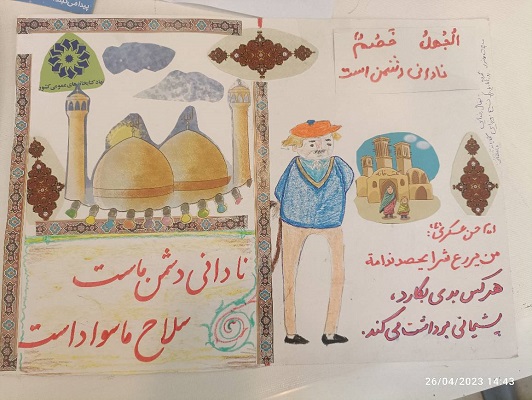 الجَهلُ خَصمٌ
نادانی دشمن است
نهاد کتابخانه‌های عمومی کشور
امام حسن عسکری(ع):
من یزرع شرا یحصد ندامة
هر کس بدی بکارد،
پشیمانی برداشت می کند.
نادانی دشمن ماست
سلاح ما سواد است
26/04/2023 14:43